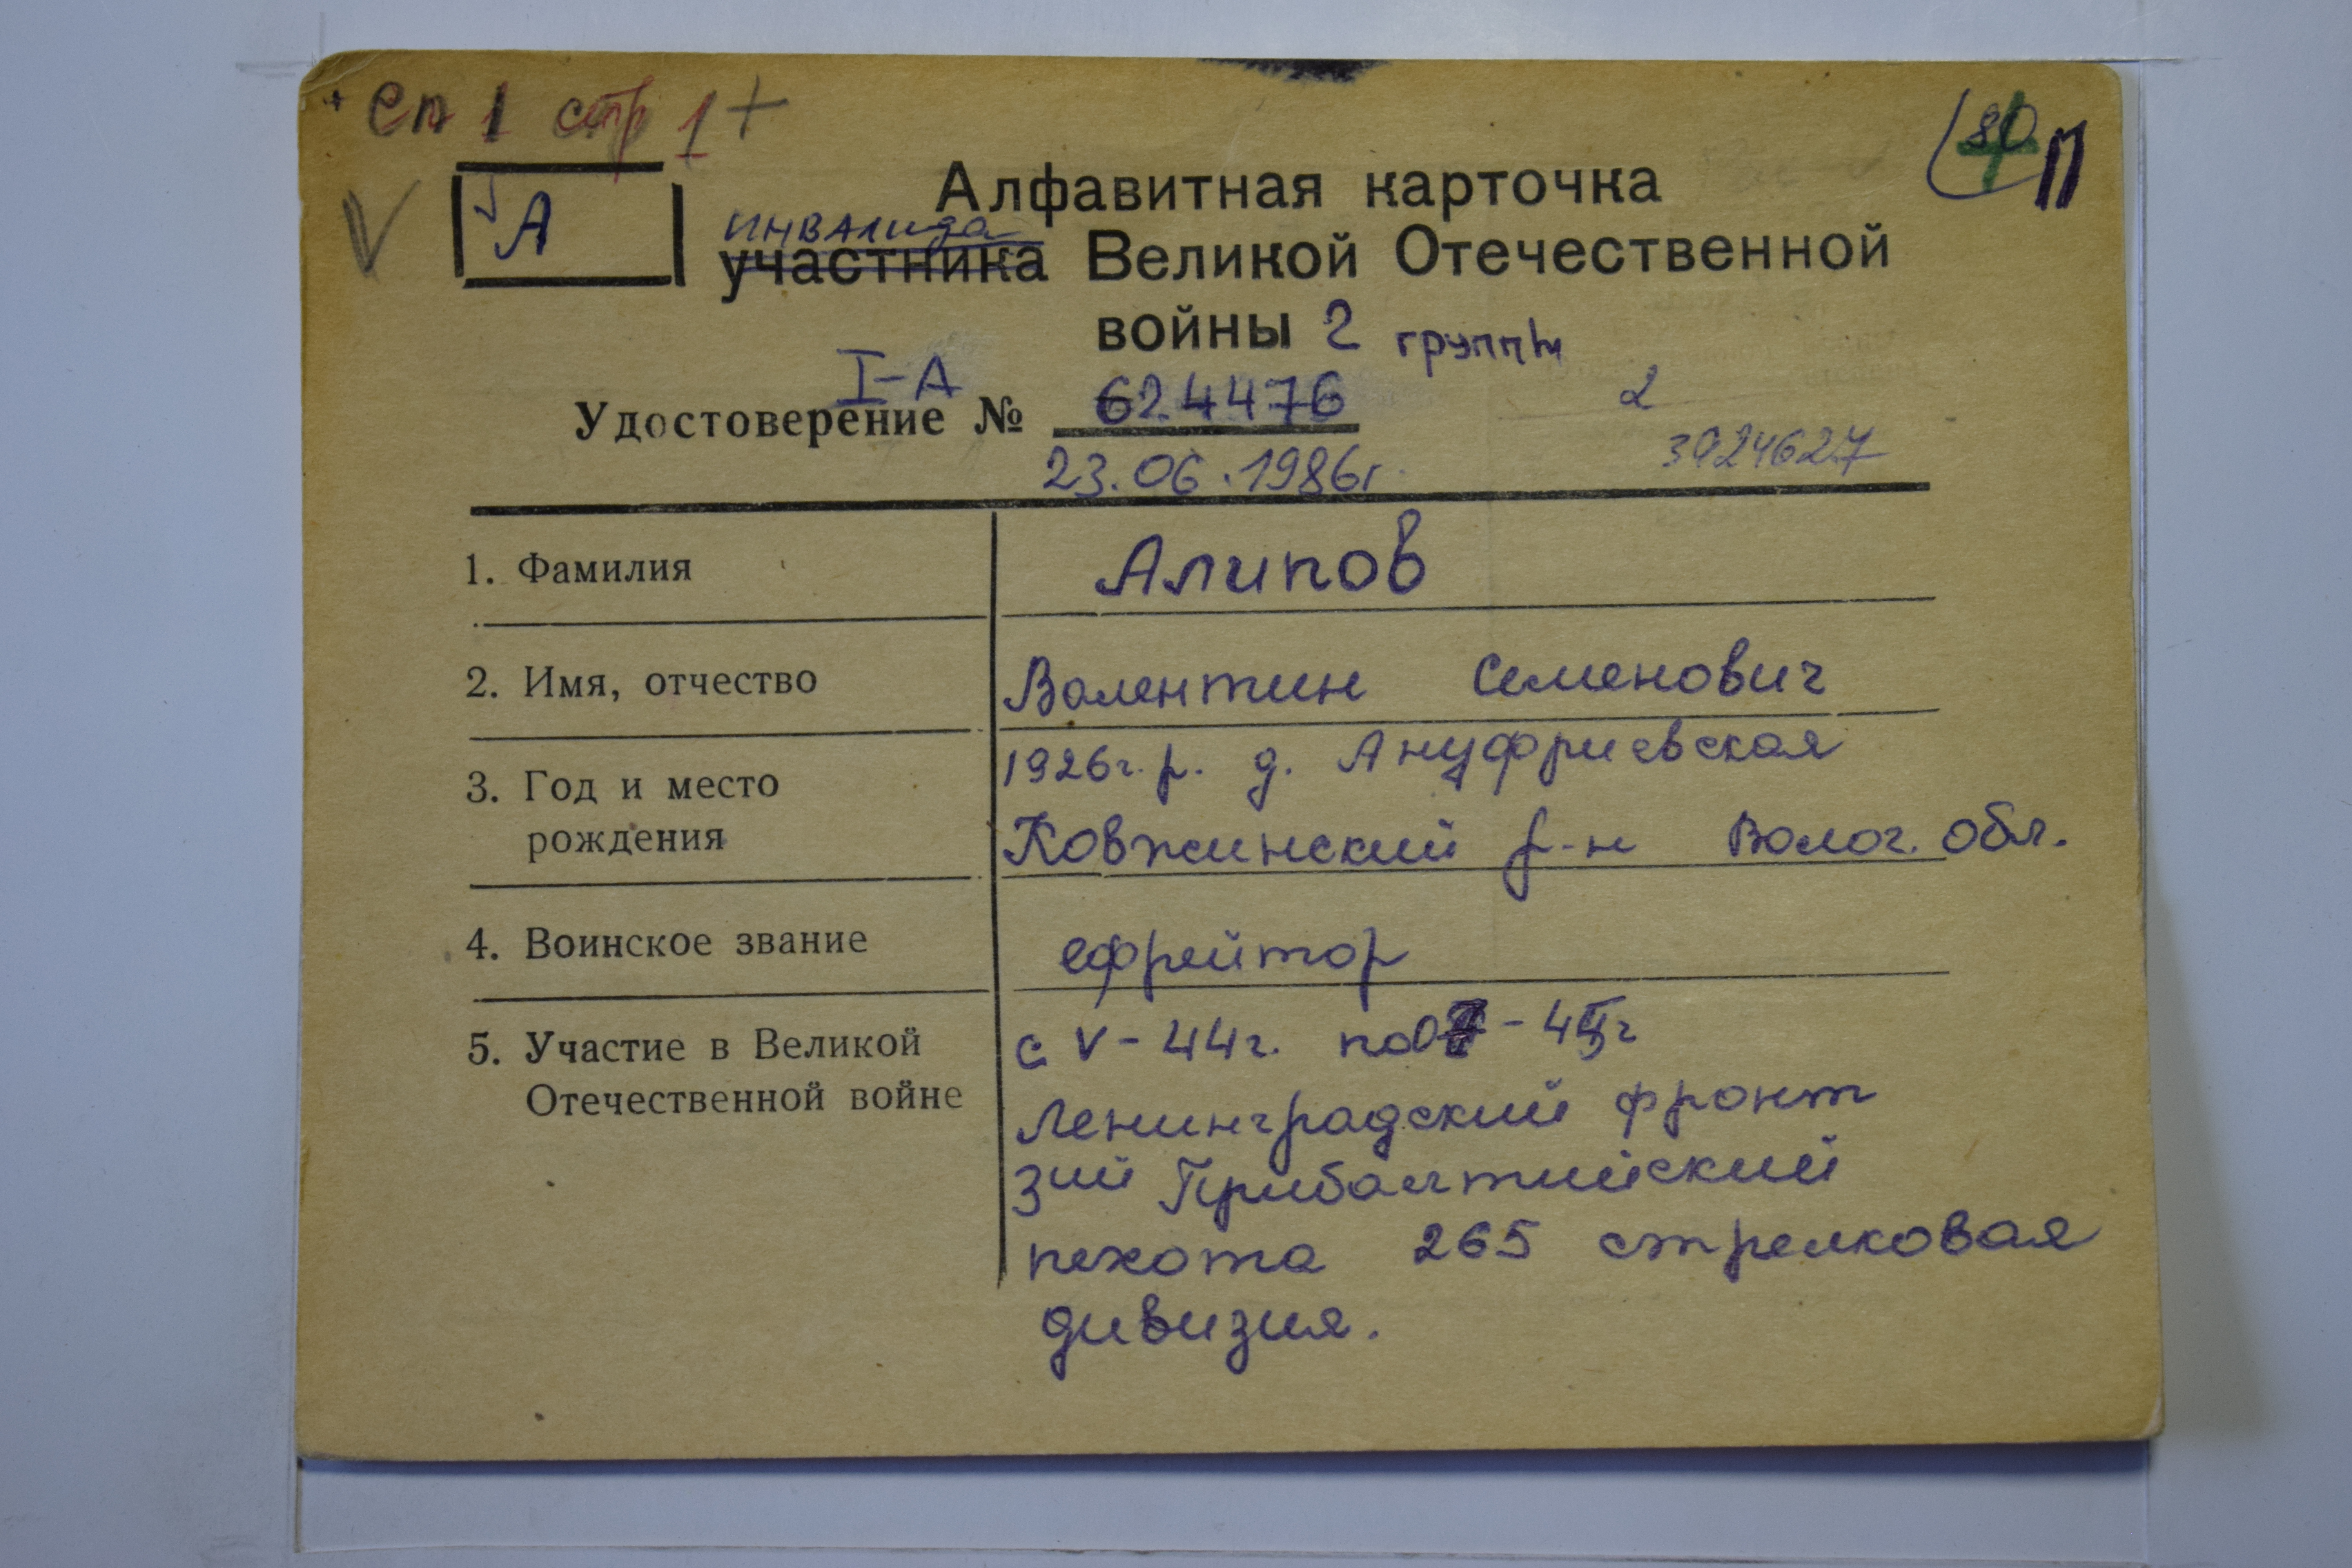 сп 1 стр 1 +
80 П
А
Алфавитная карточка
инвалида
участника Великой Отечественной
войны 2 группы
I-А
Удостоверение № 624476
2
23.06.1986г.
3924627
1. Фамилия
Алипов
2. Имя, отчество
Валентин Семенович
3. Год и место
рождения
1926г.р. д. Ануфриевская
Ковжинский р-н Волог. обл.
4. Воинское звание
ефрейтор
5. Участие в Великой
Отечественной войне
с V-44г. по -45г
Ленинградский фронт
3ий Прибалтийский
пехота 265 стрелковая
дивизия.